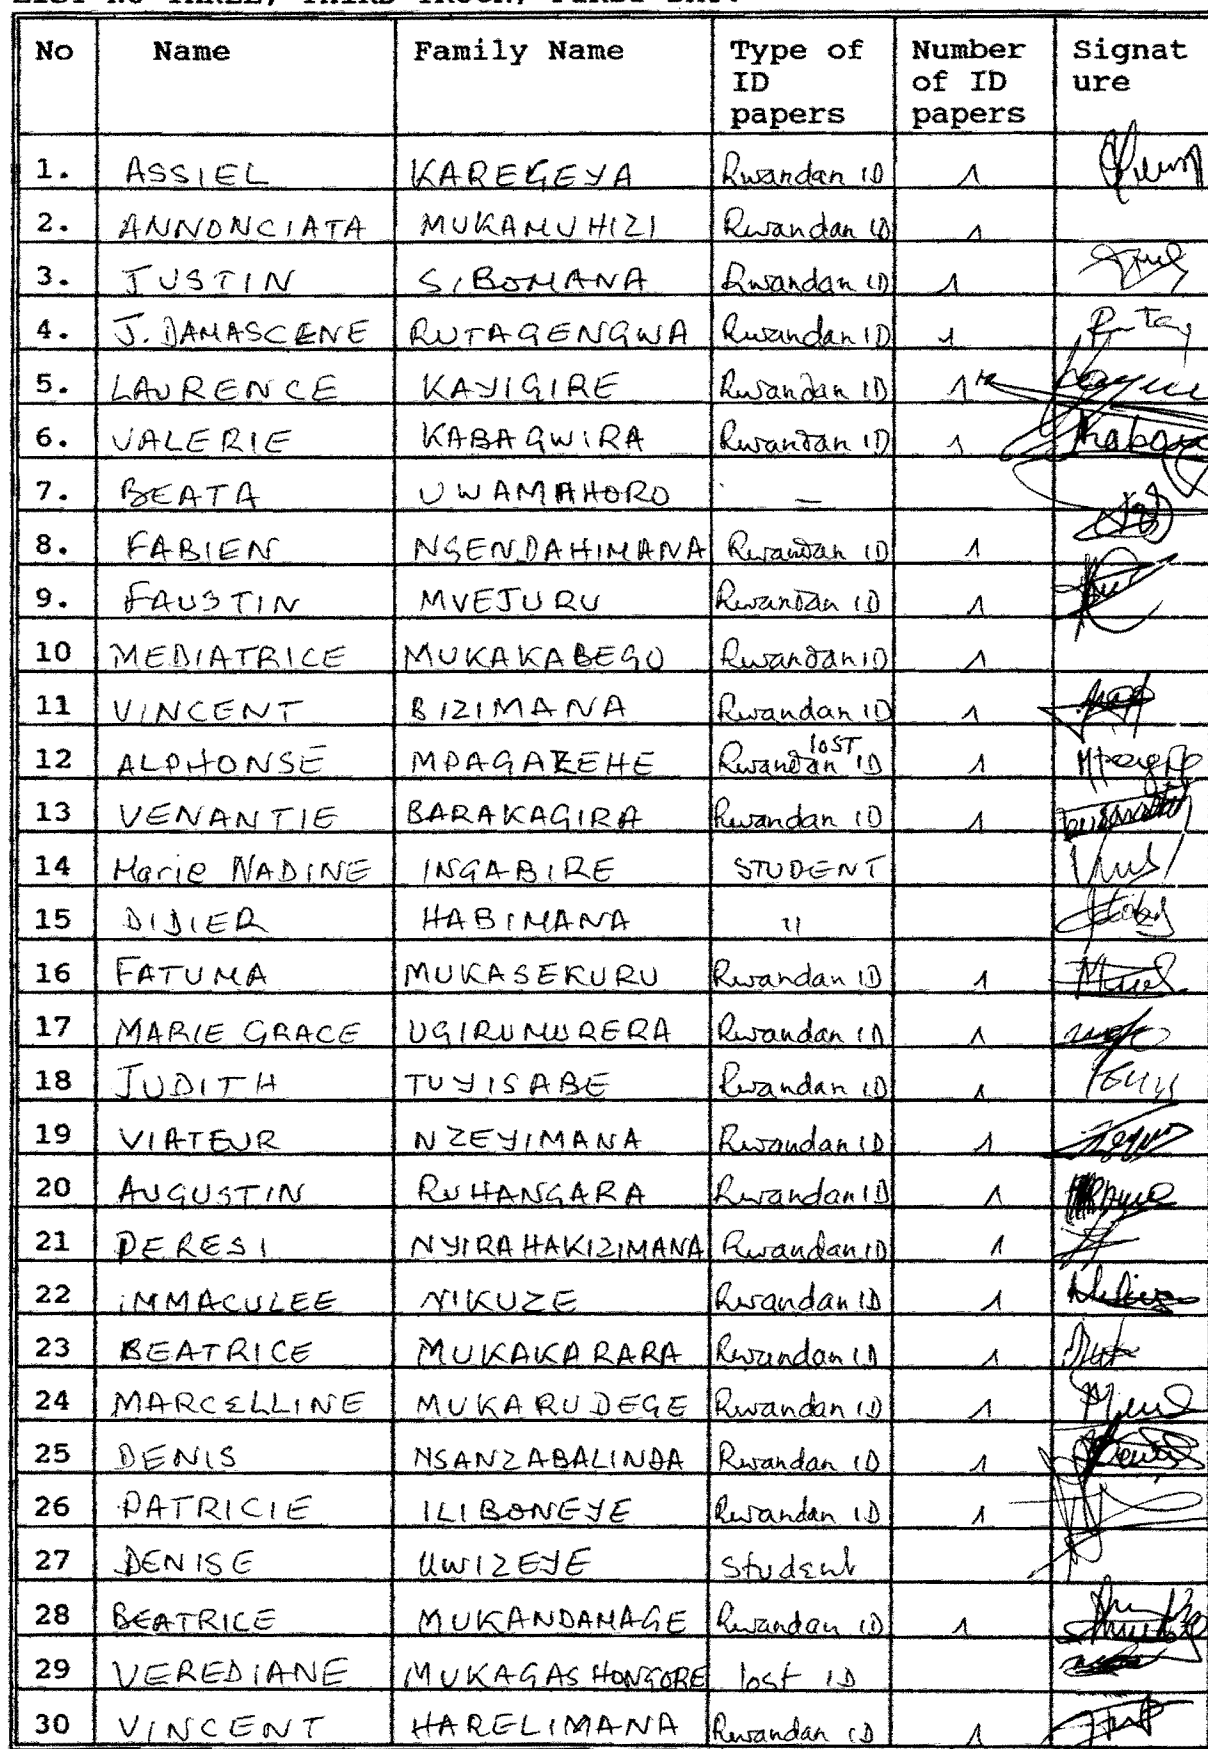 No Name Family Name Type of ID papers Number of ID papers Signat ure
1. ASSIEL KAREGEYA Rwandan ID 1
2. ANNONCIATA MUKAMUHIZI Rwandan ID 1
3. JUSTIN SIBOMANA Rwandan ID 1
4. J. DAMASCENE RUTAGENGWA Rwandan ID 1
5. LAURENCE KAYIGIRE Rwandan ID 1
6. VALERIE KABAGWIRA Rwandan ID 1
7. BEATA UWAMAHORO —
8. FABIEN NSENDAHIMANA Rwandan ID 1
9. FAUSTIN MVEJURU Rwandan ID 1
10 MEDIATRICE MUKAKABEGO Rwandan ID 1
11 VINCENT BIZIMANA Rwandan ID 1
12 ALPHONSE MPAGAZEHE Rwandan lost ID 1
13 VENANTIE BARAKAGIRA Rwandan ID 1
14 Marie NADINE INGABIRE STUDENT
15 DIDIER HABIMANA "
16 FATUMA MUKASEKURU Rwandan ID 1
17 MARIE GRACE UGIRUMURERA Rwandan ID 1
18 JUDITH TUYISABE Rwandan ID 1
19 VIATEUR NZEYIMANA Rwandan ID 1
20 AUGUSTIN RUHANGARA Rwandan ID 1
21 PERESI NYIRAHAKIZIMANA Rwandan ID 1
22 IMMACULEE NIKUZE Rwandan ID 1
23 BEATRICE MUKAKARARA Rwandan ID 1
24 MARCELLINE MUKARUDEGE Rwandan ID 1
25 DENIS NSANZABALINDA Rwandan ID 1
26 PATRICIE ILIBONEYE Rwandan ID 1
27 DENISE UWIZEYE Student
28 BEATRICE MUKANDAMAGE Rwandan ID 1
29 VEREDIANE MUKAGASHONGORE lost ID
30 VINCENT HARELIMANA Rwandan ID 1